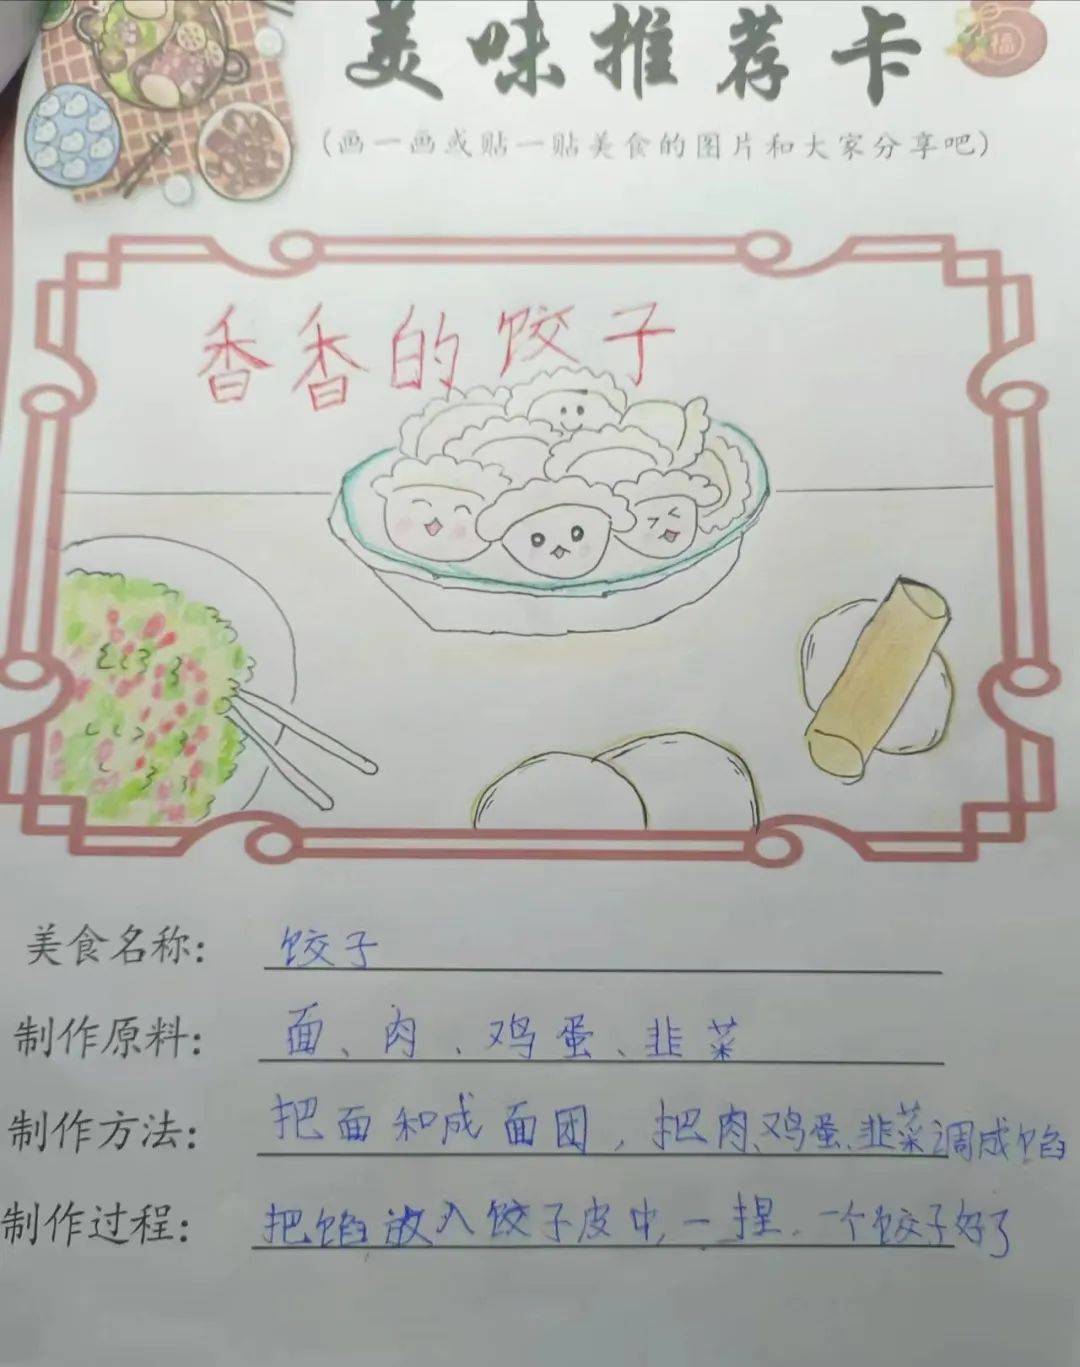 美味推荐卡
(画一画或贴一贴美食的图片和大家分享吧)
福
香香的饺子
美食名称: 饺子
制作原料: 面、肉、鸡蛋、韭菜
制作方法: 把面和成面团,把肉、鸡蛋、韭菜调成馅
制作过程: 把馅放入饺子皮中,一捏,一个饺子好了